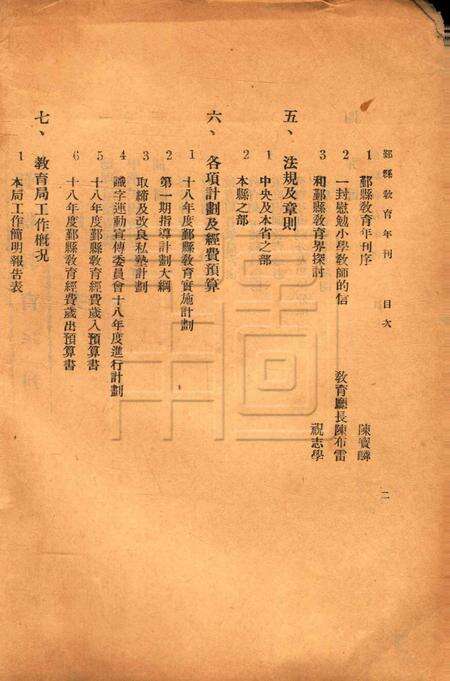 鄞縣教育年刊　目次　二
1 鄞縣教育年刊序　陳寶麟
2 一封慰勉小學教師的信　教育廳長陳布雷
3 和鄞縣教育界探討　祝志學
五、法規及章則
1 中央及本省之部
2 本縣之部
六、各項計劃及經費預算
1 十八年度鄞縣教育實施計劃
2 第一期指導計劃大綱
3 取締及改良私塾計劃
4 識字運動宣傳委員會十八年度進行計劃
5 十八年度鄞縣教育經費歲入預算書
6 十八年度鄞縣教育經費歲出預算書
七、教育局工作概況
1 本局工作簡明報告表